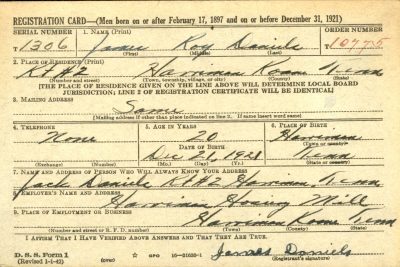 REGISTRATION CARD—(Men born on or after February 17, 1897 and on or before December 31, 1921)
SERIAL NUMBER 1. NAME (Print) ORDER NUMBER
T 1306 James Roy Daniels
(First) (Middle) (Last)
2. PLACE OF RESIDENCE (Print)
Rt #2 Harriman Roane Tenn
(Number and street) (Town, township, village, or city) (County) (State)
[THE PLACE OF RESIDENCE GIVEN ON THE LINE ABOVE WILL DETERMINE LOCAL BOARD
JURISDICTION; LINE 2 OF REGISTRATION CERTIFICATE WILL BE IDENTICAL]
3. MAILING ADDRESS
Same
[Mailing address if other than place indicated on line 2. If same insert word same]
4. TELEPHONE 5. AGE IN YEARS 6. PLACE OF BIRTH
None 20 Harriman
DATE OF BIRTH (Town or county)
Dec 21, 1921 Tenn
(Exchange) (Number) (Mo.) (Day) (Yr.) (State or country)
7. NAME AND ADDRESS OF PERSON WHO WILL ALWAYS KNOW YOUR ADDRESS
Jack Daniels Rt #2 Harriman, Tenn
8. EMPLOYER'S NAME AND ADDRESS
Harriman Hosiery Mill
9. PLACE OF EMPLOYMENT OR BUSINESS
Harriman Roane Tenn
(Number and street or R. F. D. number) (Town) (County) (State)
I AFFIRM THAT I HAVE VERIFIED ABOVE ANSWERS AND THAT THEY ARE TRUE.
D. S. S. Form 1 GPO James Daniels
(Revised 1-1-42) (over)